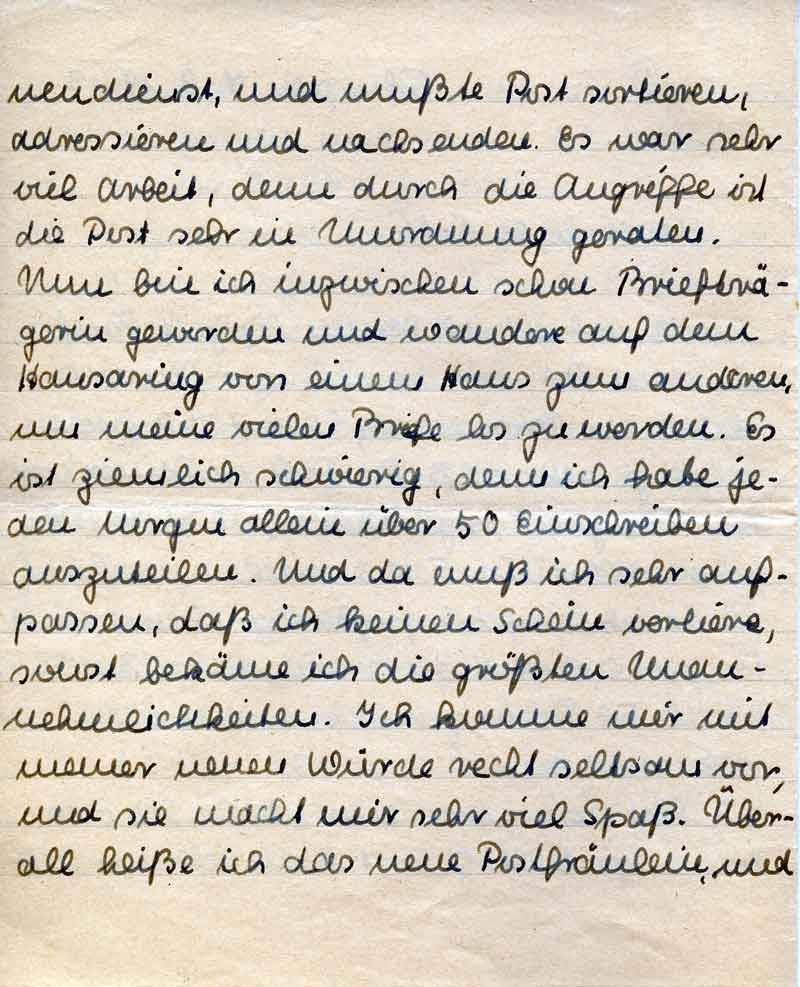 nendienst, und mußte Post sortieren,
adressieren und nachsenden. Es war sehr
viel Arbeit, denn durch die Angriffe ist
die Post sehr in Unordnung geraten.
Nun bin ich inzwischen schon Briefträ-
gerin geworden und wandere auf dem
Hansaring von einem Haus zum anderen,
um meine vielen Briefe los zu werden. Es
ist ziemlich schwierig, denn ich habe je-
den Morgen allein über 50 Einschreiben
auszuteilen. Und da muß ich sehr auf-
passen, daß ich keinen Schein verliere,
sonst bekäme ich die größten Unan-
nehmlichkeiten. Ich komme mir mit
meiner neuen Würde recht seltsam vor,
und sie macht mir sehr viel Spaß. Über-
all heiße ich das neue Postfräulein, und